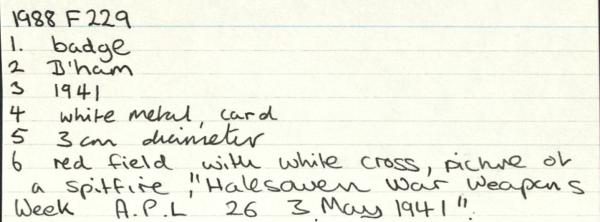 1988 F 229
1. badge
2 B'ham
3 1941
4 white metal, card
5 3 cm diameter
6 red field with white cross, picture of
a spitfire, "Halesowen War Weapons
Week A.P.L 26 3 May 1941".